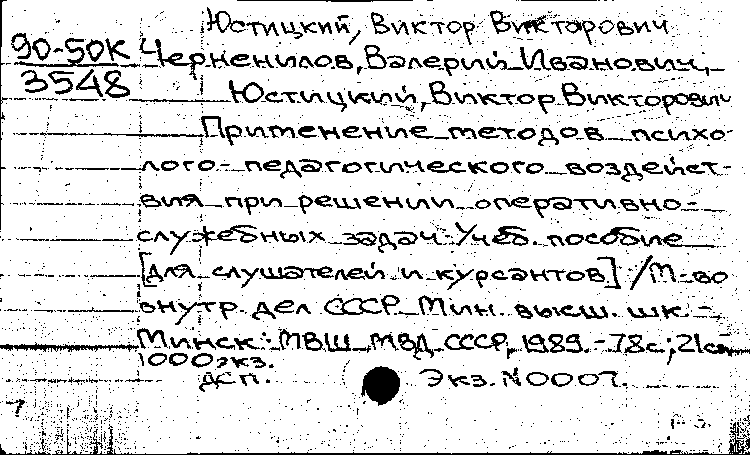 Юстицкий, Виктор Викторович
90-50К Черненилов, Валерий Иванович,
3548
Юстицкий, Виктор Викторович
Применение методов психо-
лого-педагогического воздейст-
вия при решении оперативно-
служебных задач: Учеб. пособие
[для слушателей и курсантов] / М-во
внутр. дел СССР. Мин. высш. шк. -
Минск: МВШ МВД СССР, 1989. - 78с.; 21см
1000 экз.
ДСП. Экз. N 0007.